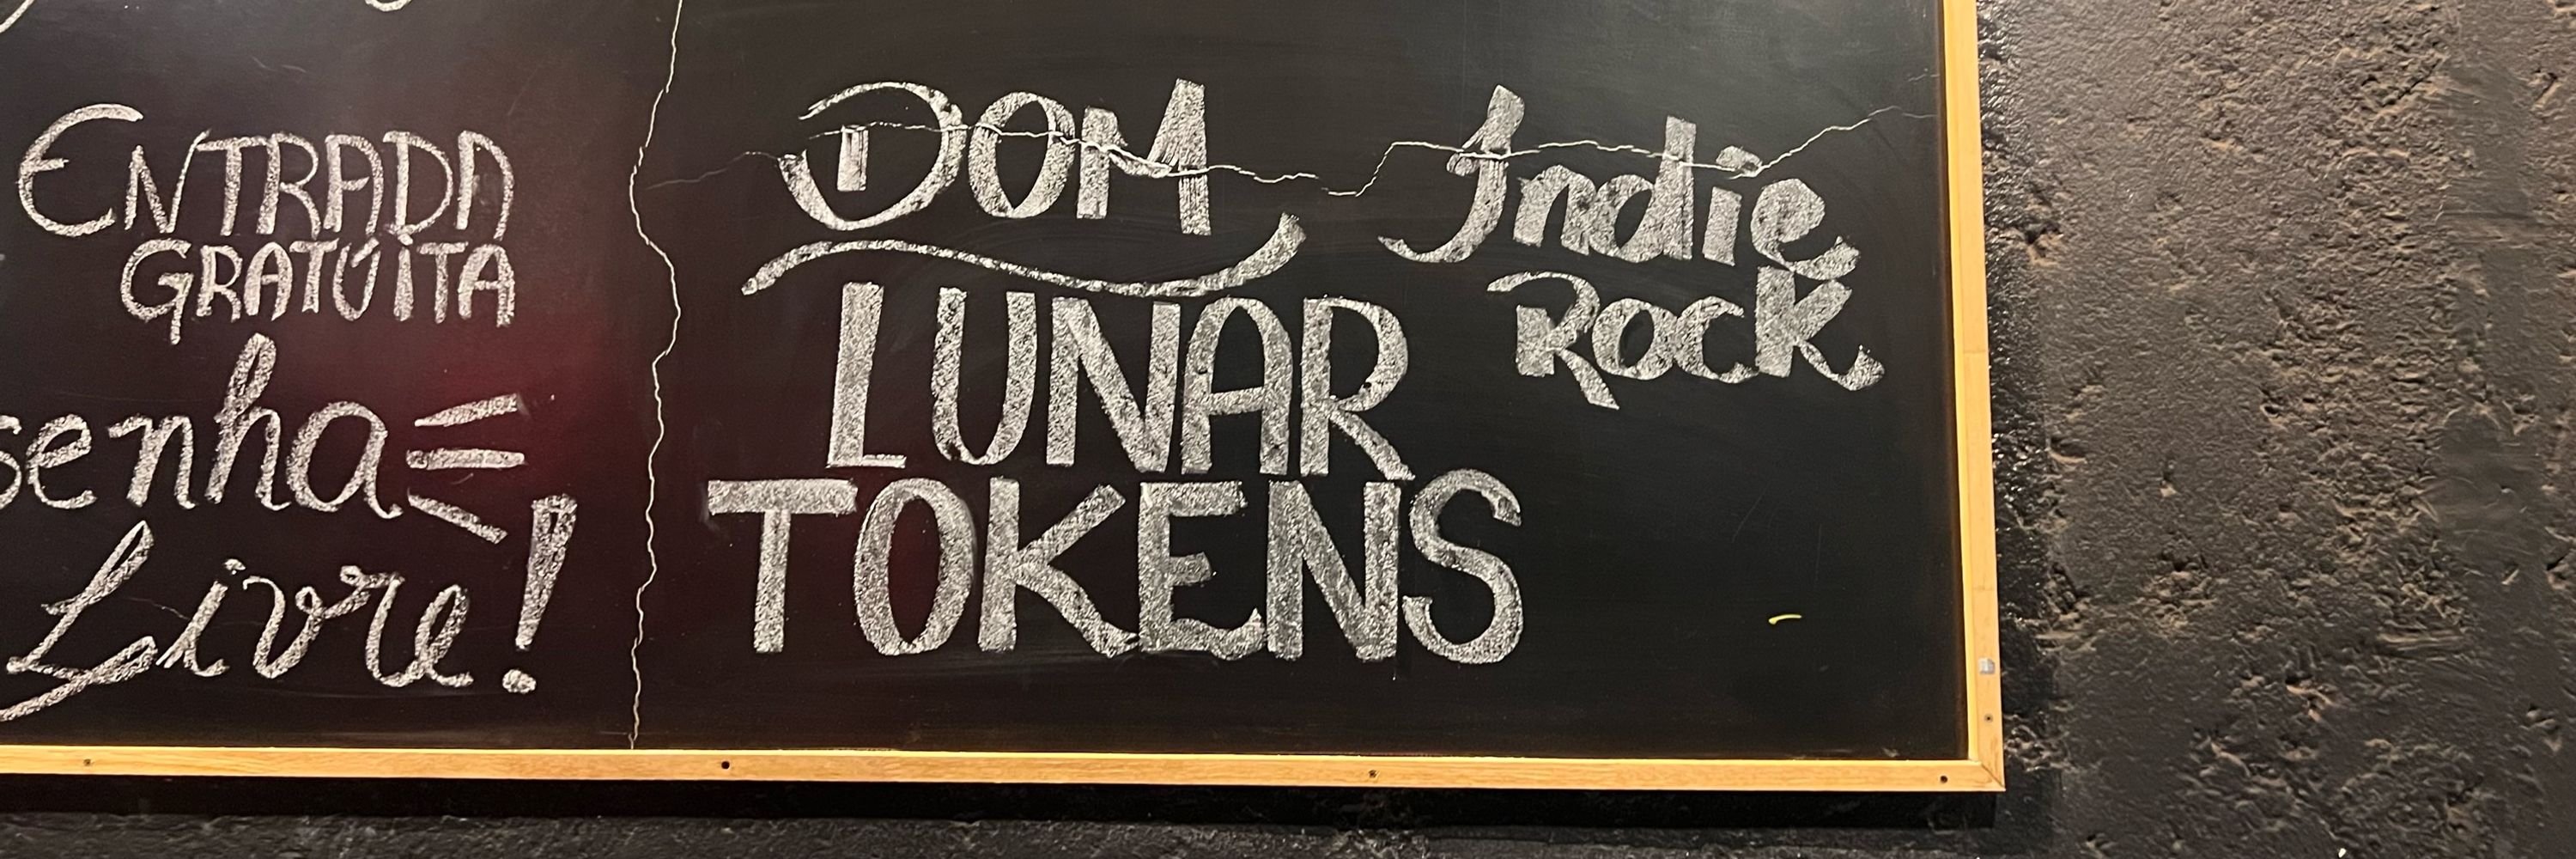 ENTRADA
GRATÚITA
senha
Livre!
DOM
LUNAR
TOKENS
Indie
Rock